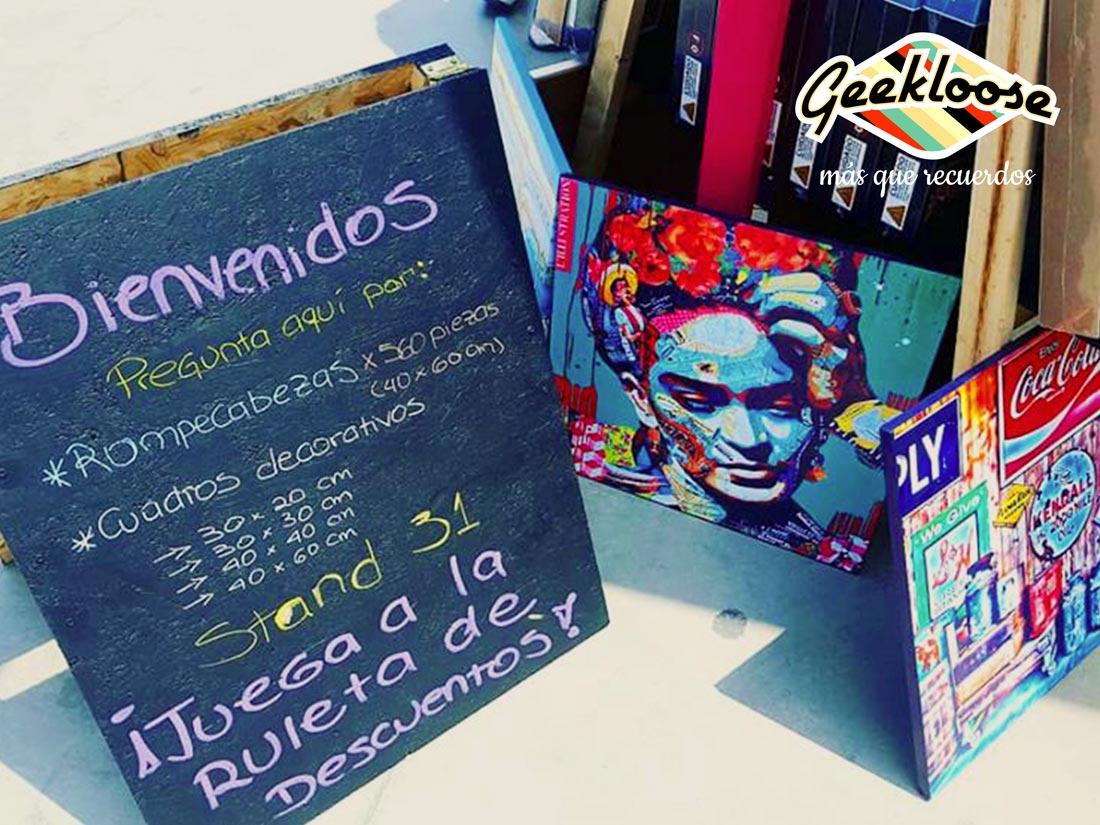 Geekloose
más que recuerdos
Bienvenidos
Pregunta aquí por:
*Rompecabezas x 560 piezas
(40 x 60 cm)
*Cuadros decorativos
→ 30 x 20 cm
→ 30 x 30 cm
→ 40 x 40 cm
→ 40 x 60 cm
Stand 31
¡Juega a la
Ruleta de
Descuentos!
L'ILLUSTRATION
Coca-Cola
PLY
We Give
KENDALL